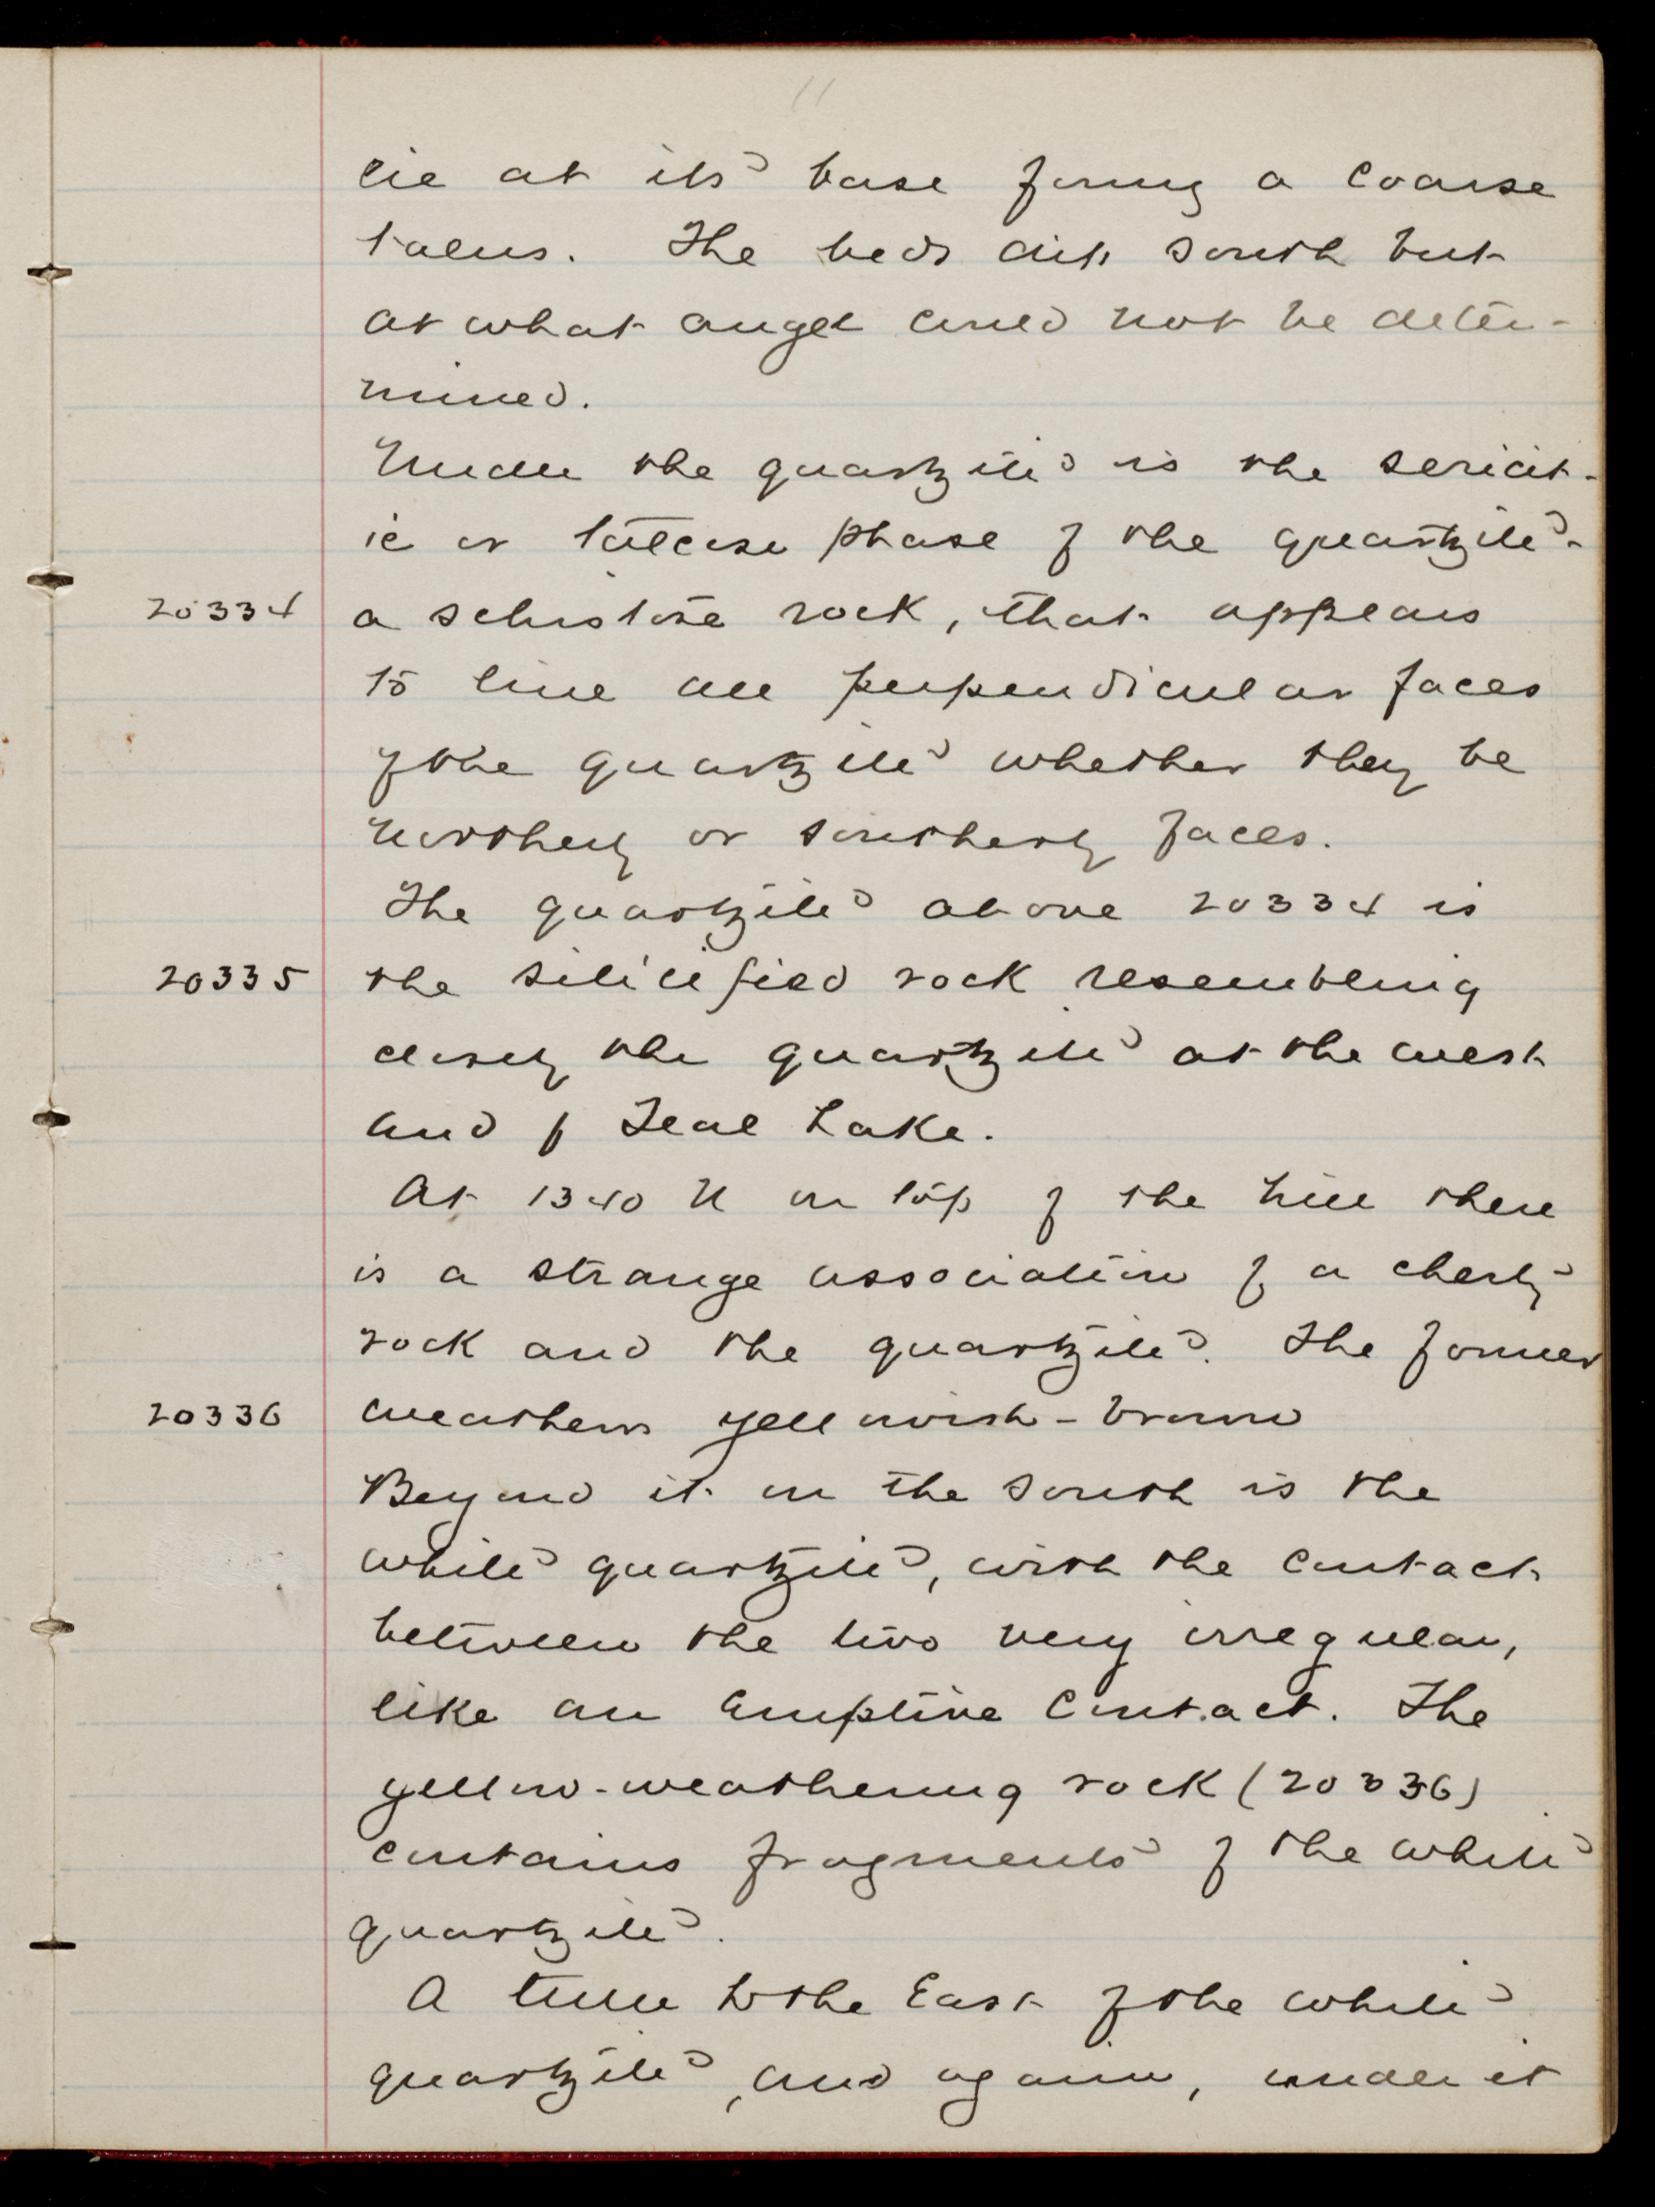 11
lie at its base forming a coarse
talus. The beds dip south but
at what angel could not be deter-
mined.
Under the quartzite is the sericit-
ic or talcose phase of the quartzite -
20334 a schistose rock, that appears
to line all perpendicular faces
of the quartzite whether they be
northerly or southerly faces.
The quartzite above 20334 is
20335 the silicified rock resembling
closely the quartzite at the west
end of Teal Lake.
At 1340 N on top of the hill there
is a strange association of a cherty
rock and the quartzite. The former
20336 weathers yellowish-brown
Beyond it on the south is the
white quartzite, with the contact
between the two very irregular,
like an eruptive contact. The
yellow-weathering rock (20336)
contains fragments of the white
quartzite.
A little to the East of the white
quartzite, and again, under it